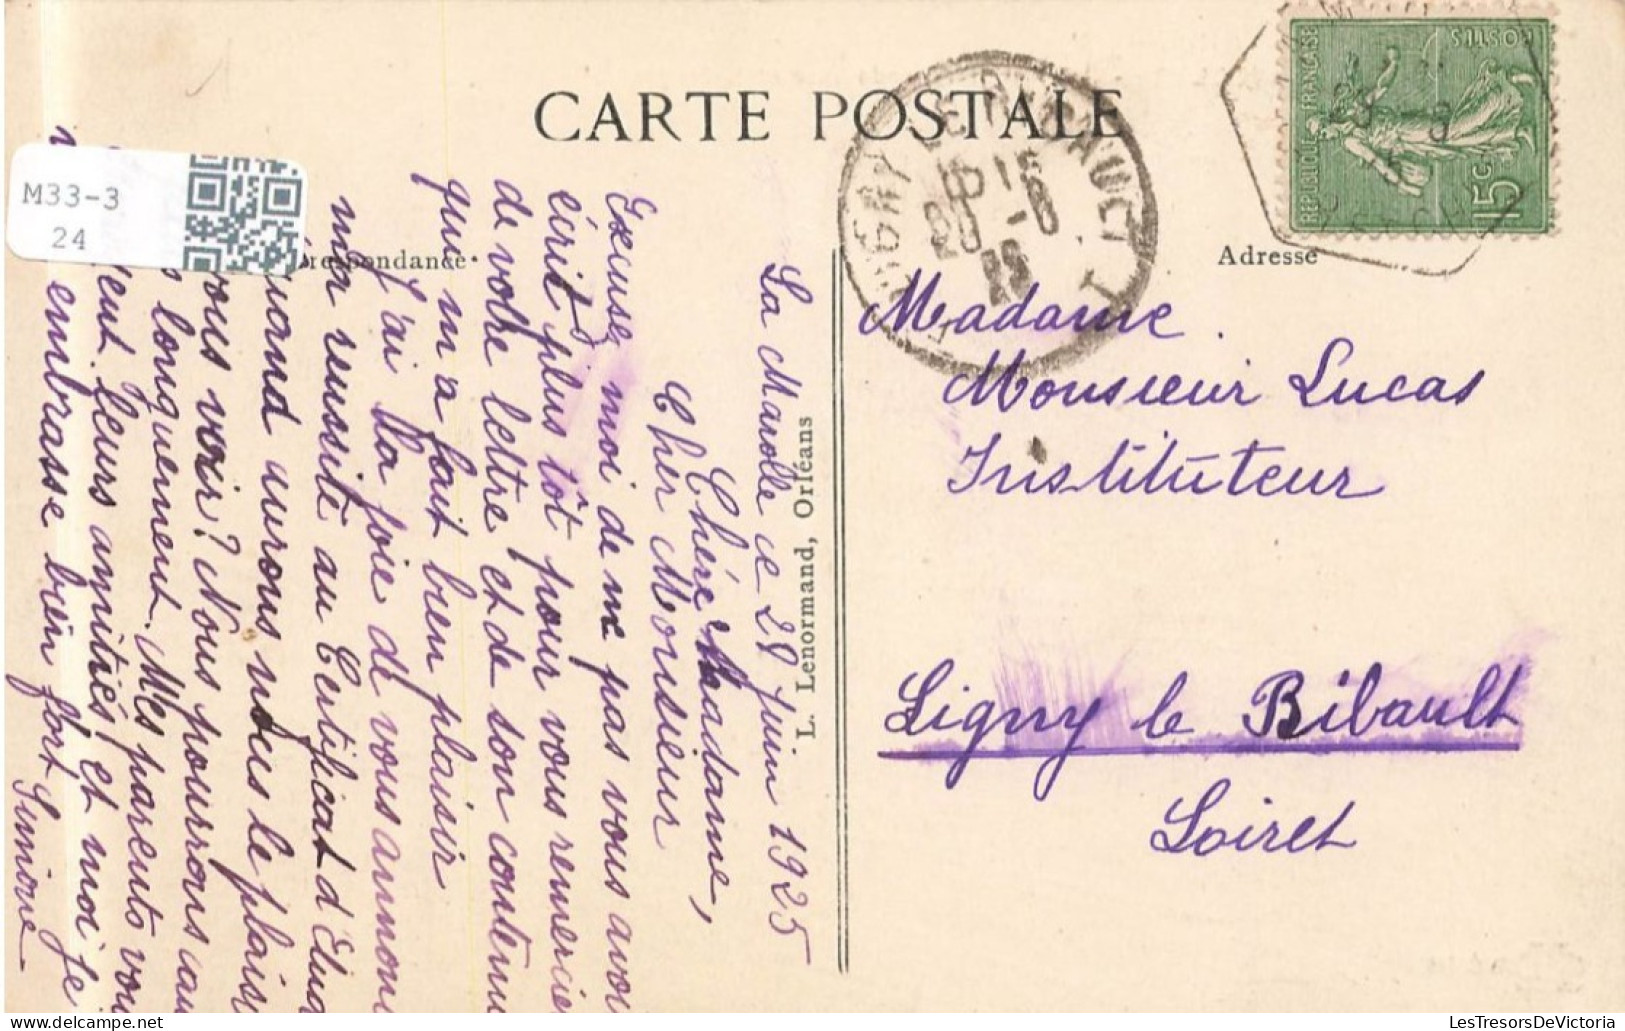 CARTE POSTALE
Correspondance
Adresse
REPUBLIQUE FRANÇAISE
POSTES
15c
LIGNY LE RIBAULT
M33-3
24
La Marolle ce 28 Juin 1925
Chère Madame,
Cher Monsieur
Excusez moi de ne pas vous avoir
écrit plus tôt pour vous remercier
de votre lettre et de son contenu
qui m'a fait bien plaisir
J'ai la joie de vous annoncer
ma réussite au Certificat d'Etud
quand aurons nous le plaisir
vous voir? Nous pourrons cau
longuement. Mes parents vou
leurs amitiés et moi je
embrasse bien fort Simone
L. Lenormand, Orléans
Madame
Monsieur Lucas
Instituteur
Ligny le Ribault
Loiret
LesTresorsDeVictoria